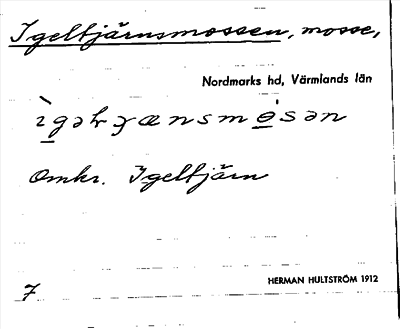 Igeltjärnsmossen, mosse,
Nordmarks hd, Värmlands län
Omkr. Igeltjärn
7
HERMAN HULTSTRÖM 1912